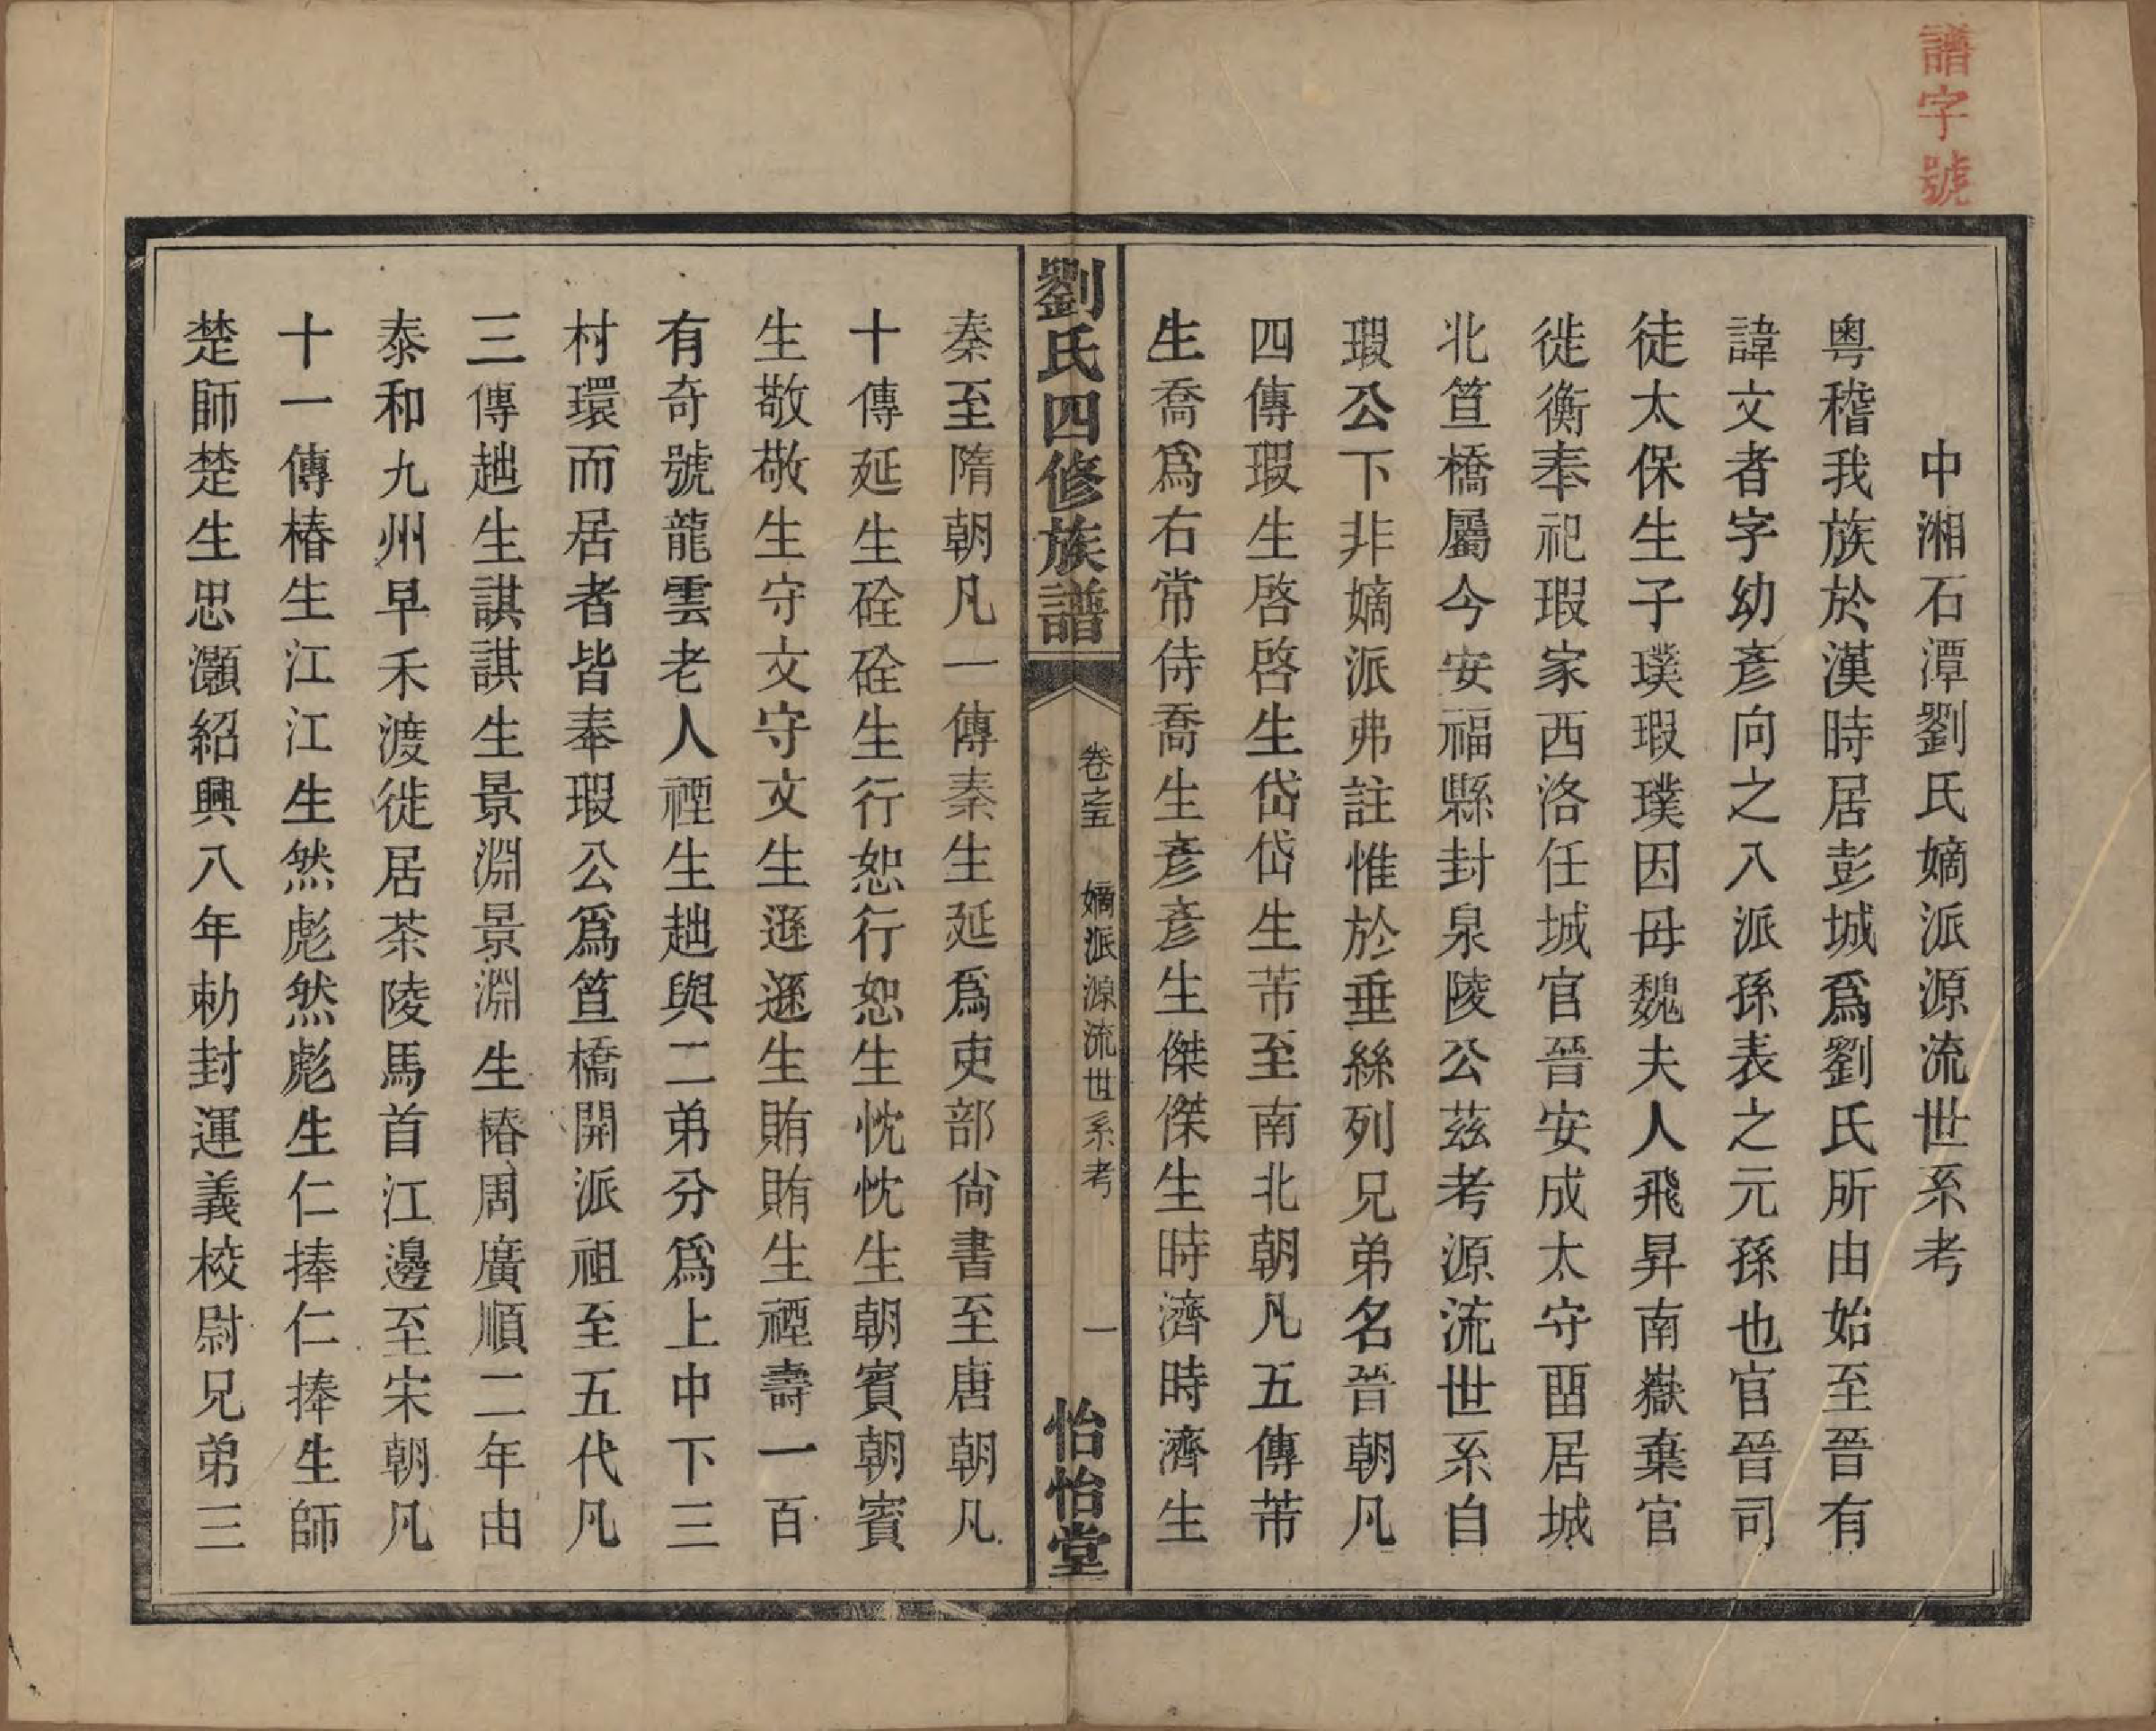 譜字號
中湘石潭劉氏嫡派源流世系考
粵稽我族於漢時居彭城爲劉氏所由始至晉有
諱文者字幼彥向之入派孫表之元孫也官晉司
徒太保生子璞瑕璞因母魏夫人飛昇南嶽棄官
徙衡奉祀瑕家西洛任城官晉安成太守畱居城
北笪橋屬今安福縣封泉陵公茲考源流世系自
瑕公下非嫡派弗註惟於垂絲列兄弟名晉朝凡
四傳瑕生啓啓生岱岱生芾至南北朝凡五傳芾
生喬爲右常侍喬生彥彥生傑傑生時濟時濟生
劉氏四修族譜
卷之五
嫡派源流世系考
一
怡怡堂
秦至隋朝凡一傳秦生延爲吏部尙書至唐朝凡
十傳延生硂硂生行恕行恕生忱忱生朝賓朝賓
生敬敬生守文守文生遜遜生賄賄生禋壽一百
有奇號龍雲老人禋生趉與二弟分爲上中下三
村環而居者皆奉瑕公爲笪橋開派祖至五代凡
三傳趉生諆諆生景淵景淵生椿周廣順二年由
泰和九州早禾渡徙居茶陵馬首江邊至宋朝凡
十一傳椿生江江生然彪然彪生仁捧仁捧生師
楚師楚生忠灝紹興八年勅封運義校尉兄弟三